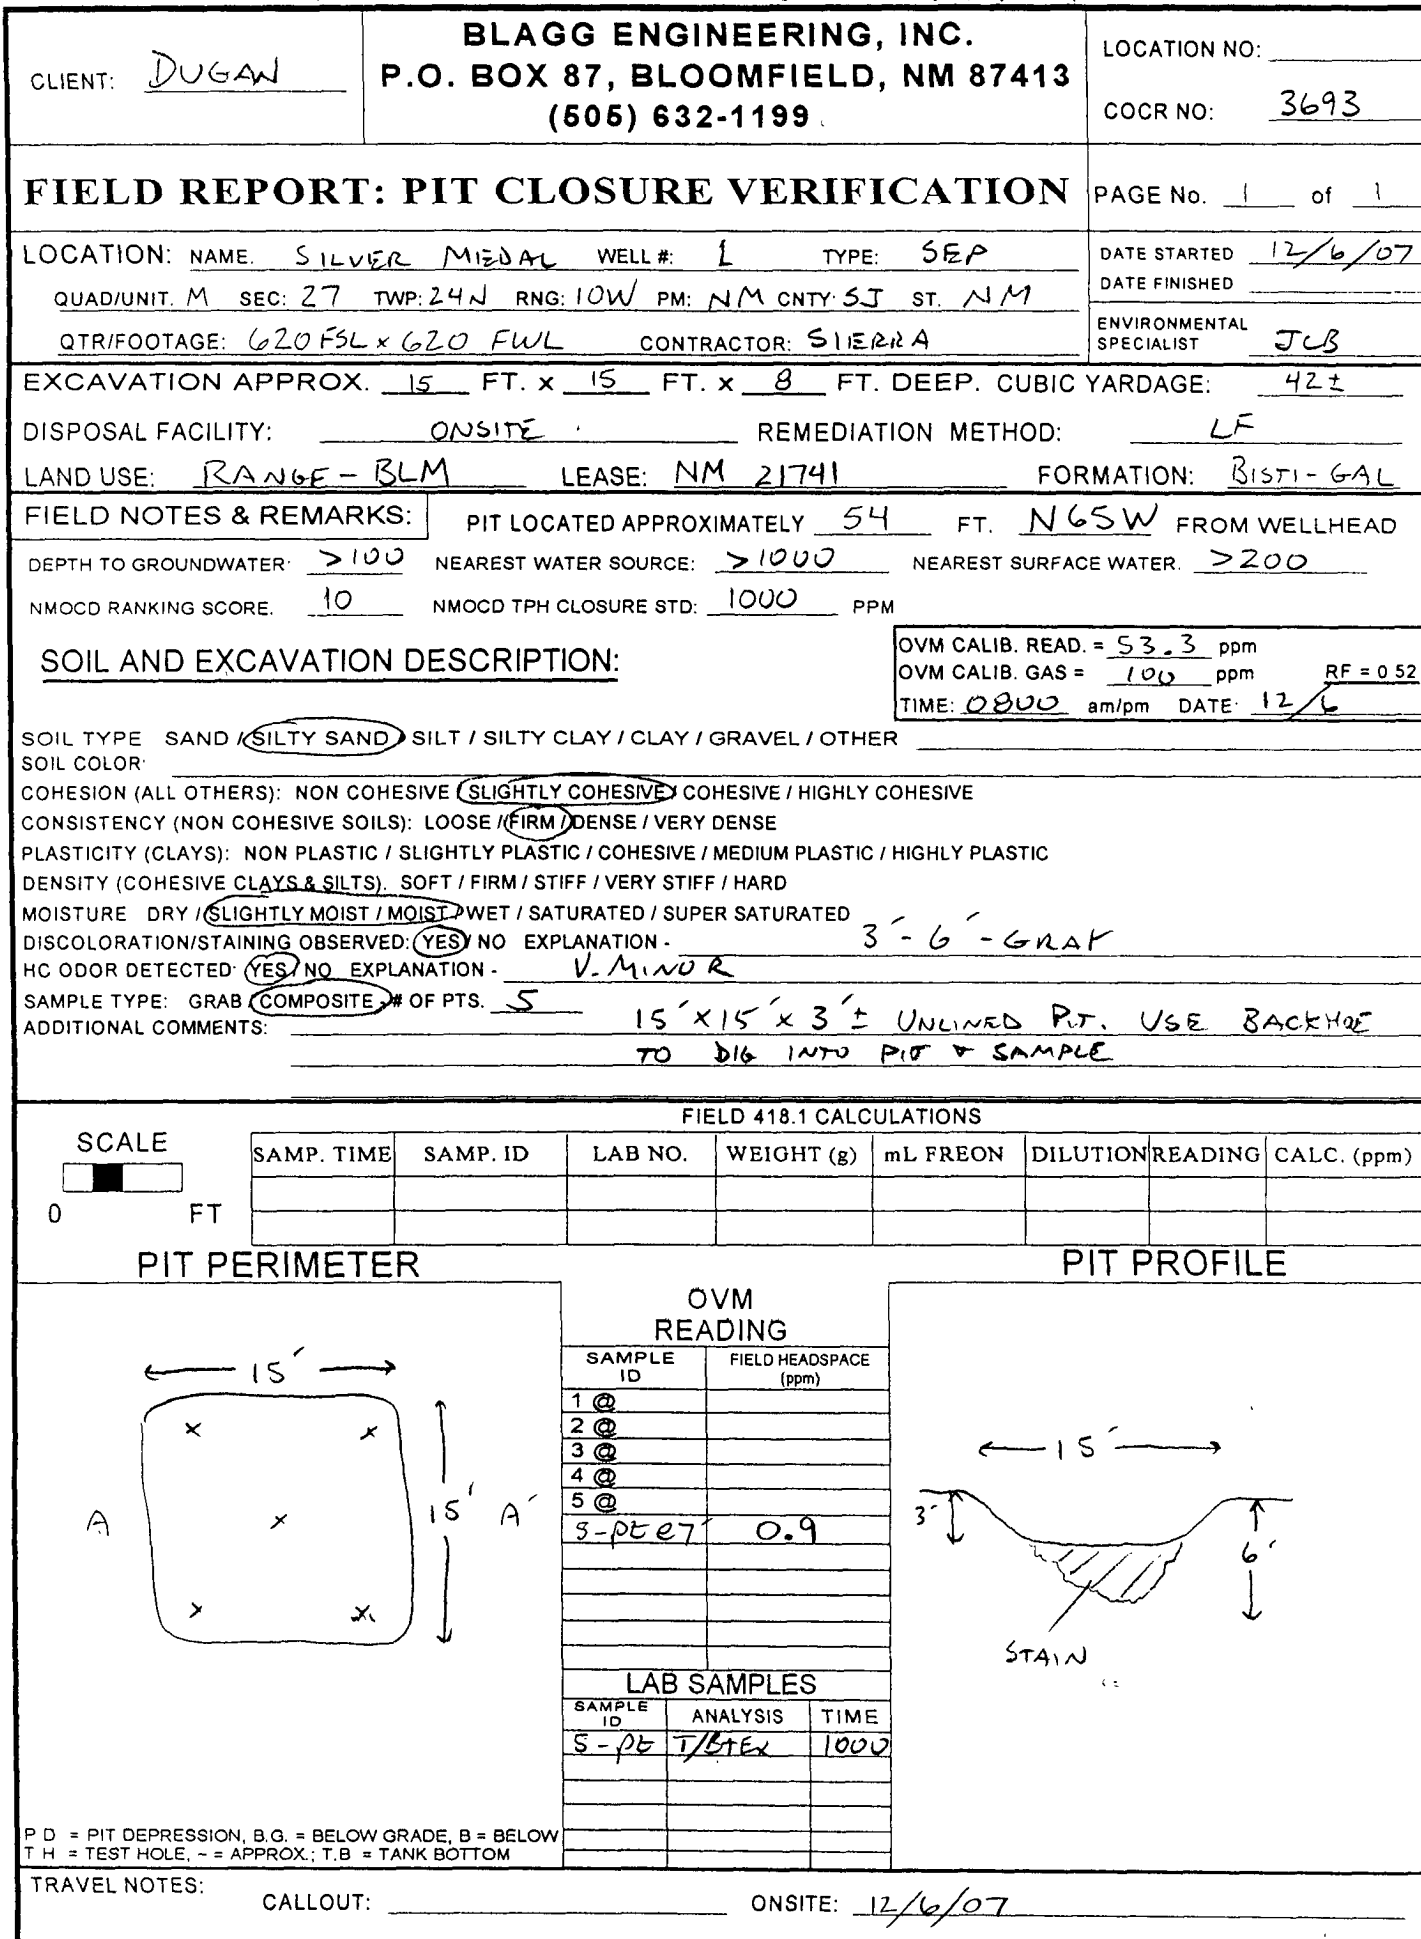 CLIENT: DUGAN
BLAGG ENGINEERING, INC.
P.O. BOX 87, BLOOMFIELD, NM 87413
(505) 632-1199
LOCATION NO:
COCR NO: 3693
FIELD REPORT: PIT CLOSURE VERIFICATION
PAGE No. 1 of 1
LOCATION: NAME. SILVER MEDAL WELL #: 1 TYPE: SEP
QUAD/UNIT. M SEC: 27 TWP: 24N RNG: 10W PM: NM CNTY: SJ ST. NM
QTR/FOOTAGE: 620 FSL x 620 FWL CONTRACTOR: SIERRA
DATE STARTED 12/6/07
DATE FINISHED
ENVIRONMENTAL
SPECIALIST JCB
EXCAVATION APPROX. 15 FT. x 15 FT. x 8 FT. DEEP. CUBIC YARDAGE: 42±
DISPOSAL FACILITY: ONSITE REMEDIATION METHOD: LF
LAND USE: RANGE - BLM LEASE: NM 21741 FORMATION: BISTI-GAL
FIELD NOTES & REMARKS: PIT LOCATED APPROXIMATELY 54 FT. N65W FROM WELLHEAD
DEPTH TO GROUNDWATER: >100 NEAREST WATER SOURCE: >1000 NEAREST SURFACE WATER. >200
NMOCD RANKING SCORE. 10 NMOCD TPH CLOSURE STD: 1000 PPM
SOIL AND EXCAVATION DESCRIPTION:
OVM CALIB. READ. = 53.3 ppm
OVM CALIB. GAS = 100 ppm RF = 0 52
TIME: 0800 am/pm DATE: 12/6
SOIL TYPE SAND / SILTY SAND / SILT / SILTY CLAY / CLAY / GRAVEL / OTHER
SOIL COLOR:
COHESION (ALL OTHERS): NON COHESIVE / SLIGHTLY COHESIVE / COHESIVE / HIGHLY COHESIVE
CONSISTENCY (NON COHESIVE SOILS): LOOSE / FIRM / DENSE / VERY DENSE
PLASTICITY (CLAYS): NON PLASTIC / SLIGHTLY PLASTIC / COHESIVE / MEDIUM PLASTIC / HIGHLY PLASTIC
DENSITY (COHESIVE CLAYS & SILTS). SOFT / FIRM / STIFF / VERY STIFF / HARD
MOISTURE DRY / SLIGHTLY MOIST / MOIST / WET / SATURATED / SUPER SATURATED
DISCOLORATION/STAINING OBSERVED: YES / NO EXPLANATION - 3' - 6' - GRAY
HC ODOR DETECTED: YES / NO EXPLANATION - V. MINOR
SAMPLE TYPE: GRAB / COMPOSITE # OF PTS. 5
ADDITIONAL COMMENTS: 15' x 15' x 3'± UNLINED PIT. USE BACKHOE
TO DIG INTO PIT & SAMPLE
FIELD 418.1 CALCULATIONS
SCALE
0 FT
SAMP. TIME SAMP. ID LAB NO. WEIGHT (g) mL FREON DILUTION READING CALC. (ppm)
PIT PERIMETER
PIT PROFILE
OVM
READING
SAMPLE
ID
FIELD HEADSPACE
(ppm)
1 @
2 @
3 @
4 @
5 @
5-pt @ 7' 0.9
15'
x x
A x 15' A'
x x
15'
3'
6'
STAIN
LAB SAMPLES
SAMPLE
ID
ANALYSIS TIME
5-pt T/BTEX 1000
P D = PIT DEPRESSION, B.G. = BELOW GRADE, B = BELOW
T H = TEST HOLE, ~ = APPROX.; T.B = TANK BOTTOM
TRAVEL NOTES:
CALLOUT: ONSITE: 12/6/07